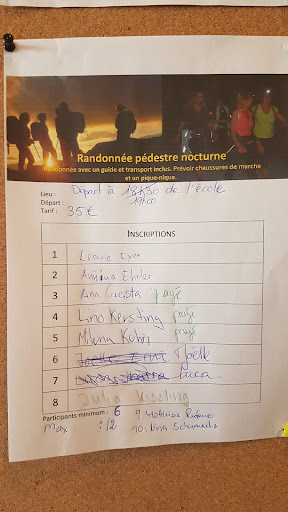 Randonnée pédestre nocturne
Randonnée avec un guide et transport inclus. Prévoir chaussures de marche
et un pique-nique.
Lieu : Départ à 18h30 de l'école
Départ : 19h00
Tarif : 35 €
INSCRIPTIONS
1 Leonie
2 Ehrler
3 Ana Cuesta payé
4 Lino Kersting payé
5 Milena Kuhn payé
6 Noëlle
7 Luca
8 Julia Kissling
Participants minimum : 6 9. Mathias
Max : 12 10. Lina Schumacher